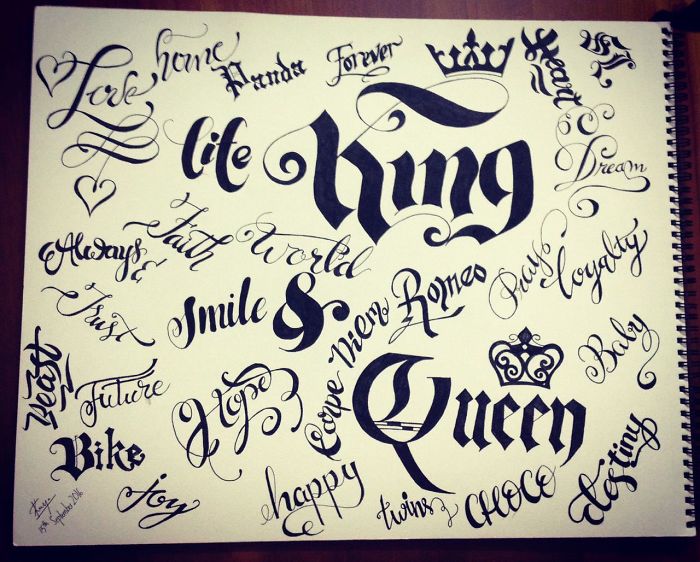 home
Love
Panda
Forever
Heart
life
King
Dream
Faith
World
Always
&
Trust
Smile
&
Romeo
Pray
loyalty
Carpe Diem
Baby
Beast
Future
Hope
Queen
Bike
joy
happy
twins
CHOCO
Destiny
15th September 2016